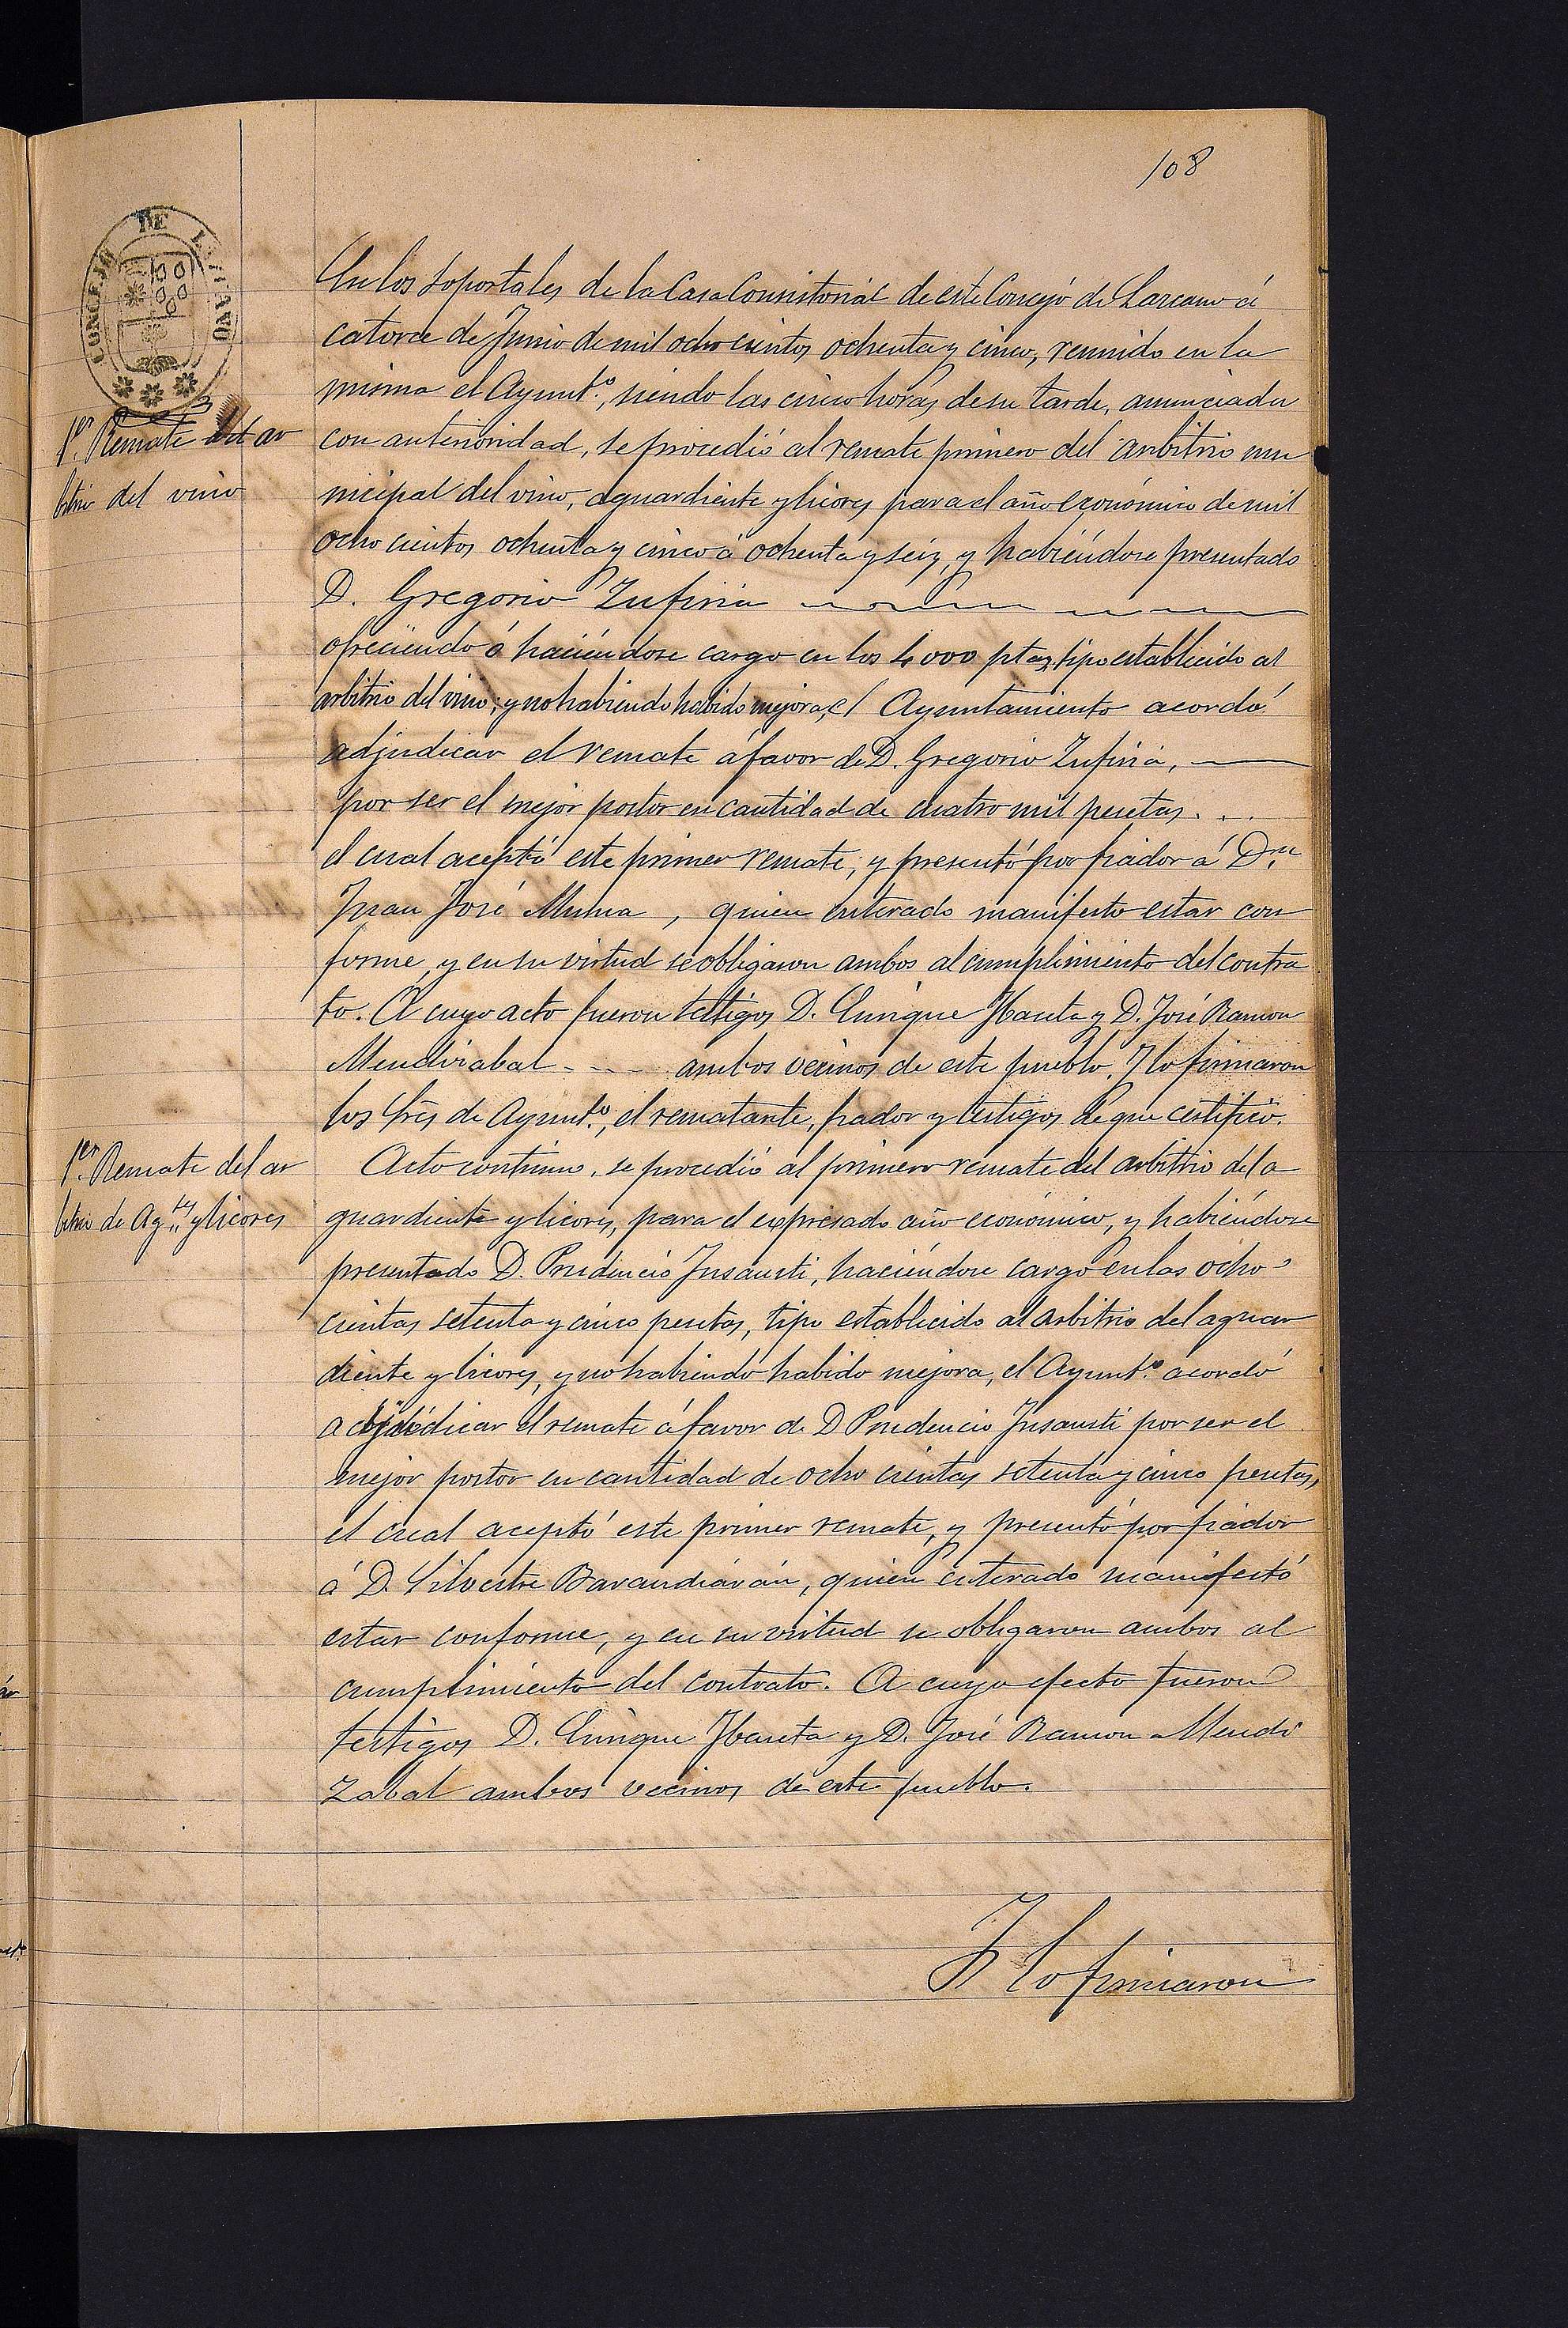 108
CONCEJO DE LAZCANO
En los soportales de la Casa Consistorial de este Concejo de Lazcano á
catorce de Junio de mil ochocientos ochenta y cinco, reunido en la
misma el Ayunt.º, siendo las cinco horas de su tarde, anunciada
1.er Remate del ar
con anterioridad, se procedió al remate primero del arbitrio mu
bitrio del vino
nicipal del vino, aguardiente y licores para el año económico de mil
ocho cientos ochenta y cinco á ochenta y seis, y habiéndose presentado
D. Gregorio Zufiria
ofreciendo ó haciéndose cargo en los 4000 ptas, tipo establecido al
arbitrio del vino; y no habiendo habido mejora, el Ayuntamiento acordó
adjudicar el remate á favor de D. Gregorio Zufiria,
por ser el mejor postor en cantidad de cuatro mil pesetas...
el cual aceptó este primer remate; y presentó por fiador á D.n
Juan José Munua, quien enterado manifesto estar con
forme, y en su virtud se obligaron ambos al cumplimiento del contra
to. A cuyo acto fueron testigos D. Enrique Ibareta y D. José Ramon
Mendizabal ---- ambos vecinos de este pueblo. Y lo firmaron
los Sres de Ayunt.º, el rematante, fiador y testigos de que certifico.
1.er Remate del ar
Acto continuo, se procedió al primero remate del arbitrio del a
bitrio de Ag.tes y licores
guardiente y licores, para el expresado año económico, y habiéndose
presentado D. Prudencio Insausti, haciéndose cargo en las ocho
cientas setenta y cinco pesetas, tipo establecido al arbitrio del aguar
diente y licores, y no habiendo habido mejora, el Ayunt.º acordó
adjudicar el remate á favor de D Prudencio Insausti por ser el
mejor postor en cantidad de ocho cientas setenta y cinco pesetas,
el cual aceptó este primer remate, y presentó por fiador
á D. Silvestre Barandiarán, quien enterado manifestó
estar conforme, y en su virtud se obligaron ambos al
cumplimiento del contrato. A cuyo efecto fueron
testigos D. Enrique Ibareta y D. José Ramon Mendi
zabal ambos vecinos de este pueblo.
Y lo firmaron